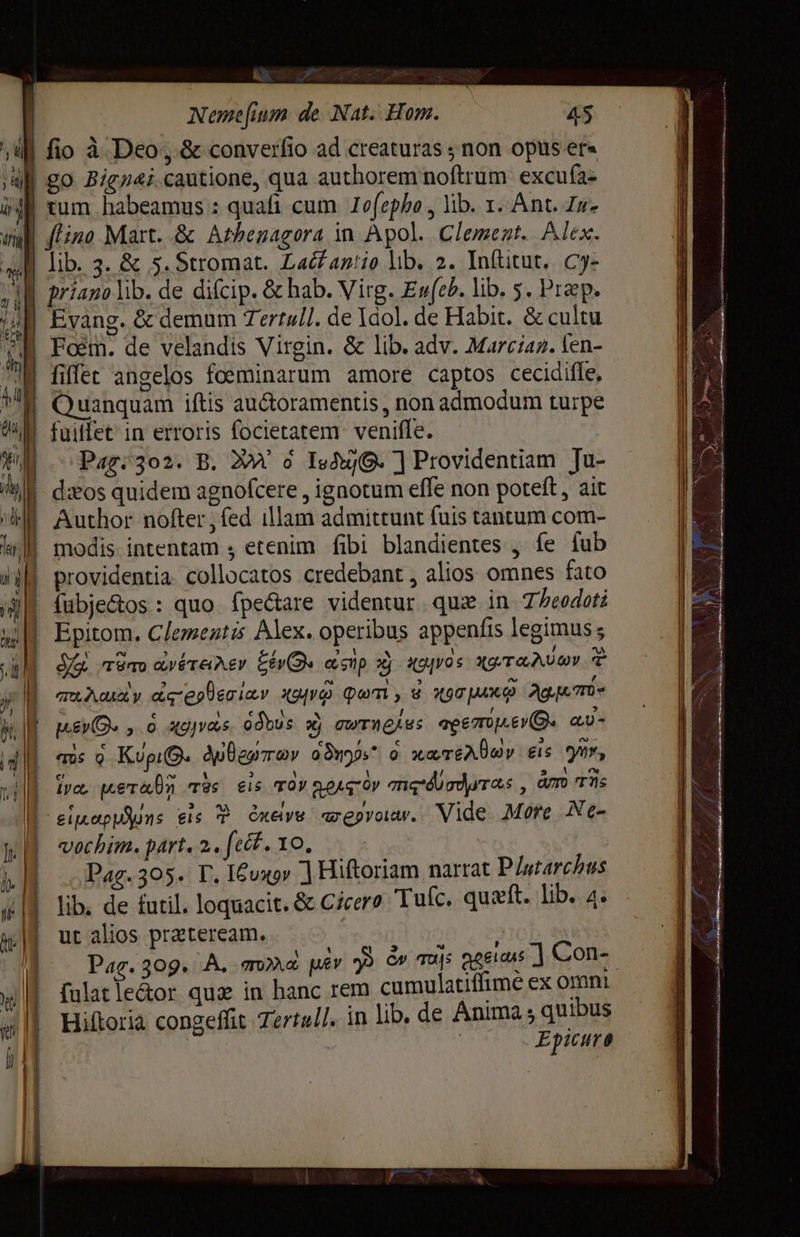 Nemeſium de Nat. Hom. 45
ſio à Deo, & converſio ad creaturas; non opus er-
go Bignæi cautione, qua authorem noſtrum excuſa-
tum habeamus: quaſi cum Ioſepho, lib. 1. Ant. Iu-
ſtino Mart. & Athenagora in Apol. Clement. Alex.
lib. 3. & 5. Stromat. Lactantio lib. 2. Inſtitut. Cy-
priano lib. de diſcip. & hab. Virg. Euſeb. lib. 5. Præp.
Evang. & demum Tertull. de Idol. de Habit. & cultu
Fœm. de velandis Virgin. & lib. adv. Marcian. ſen-
ſiſſet angelos fœminarum amore captos cecidiſſe,
Quanquam iſtis auctoramentis, non admodum turpe
fuiſſet in erroris ſocietatem veniſſe.
Pag. 302. B. Ἀλλ' ὁ Ἰυδαῖος ] Providentiam Ju-
dæos quidem agnoſcere, ignotum eſſe non poteſt, ait
Author noſter, ſed illam admittunt ſuis tantum com-
modis intentam; etenim ſibi blandientes, ſe ſub
providentia collocatos credebant, alios omnes fato
ſubjectos: quo ſpectare videntur quæ in Theodoti
Epitom. Clementis Alex. operibus appenſis legimus;
διὰ τῦτο ἀνέτειλεν ξένος ἀστὴρ καὶ καινὸς καταλύων τ̀
παλαιὰν ἀστροθεσίαν καινῷ φωτὶ, ὐ κοσμικῷ λαμπό-
μενος, ὁ καινὰς ὁδοὺς καὶ σωτηρίυς τρεπόμενος αὐ-
τὸς ὁ Κύριος ἀνθρώπων ὁδηγὸς· ὁ κατελθὼν εἰς γῆν,
ἵνα μεταθῇ τὺς εἰς τὸν χριστὸν πιστεύσαντας, ἀπὸ τῆς
εἱμαρμένης εἰς τ̀ ἐκείνυ πρόνοιαν. Vide More Ne-
vochim. part. 2. ſect. 10.
Pag. 305. Γ. Ἴβυκον ] Hiſtoriam narrat Plutarchus
lib. de futil. loquacit. & Cicero Tuſc. quæſt. lib. 4.
ut alios prætеream.
Pag. 309. A. πολλὰ μὲν γὰρ ἐν ταῖς χρείαις ] Con-
ſulat lector quæ in hanc rem cumulatiſſimè ex omni
Hiſtoria congeſſit Tertull. in lib. de Anima; quibus
Epicuro